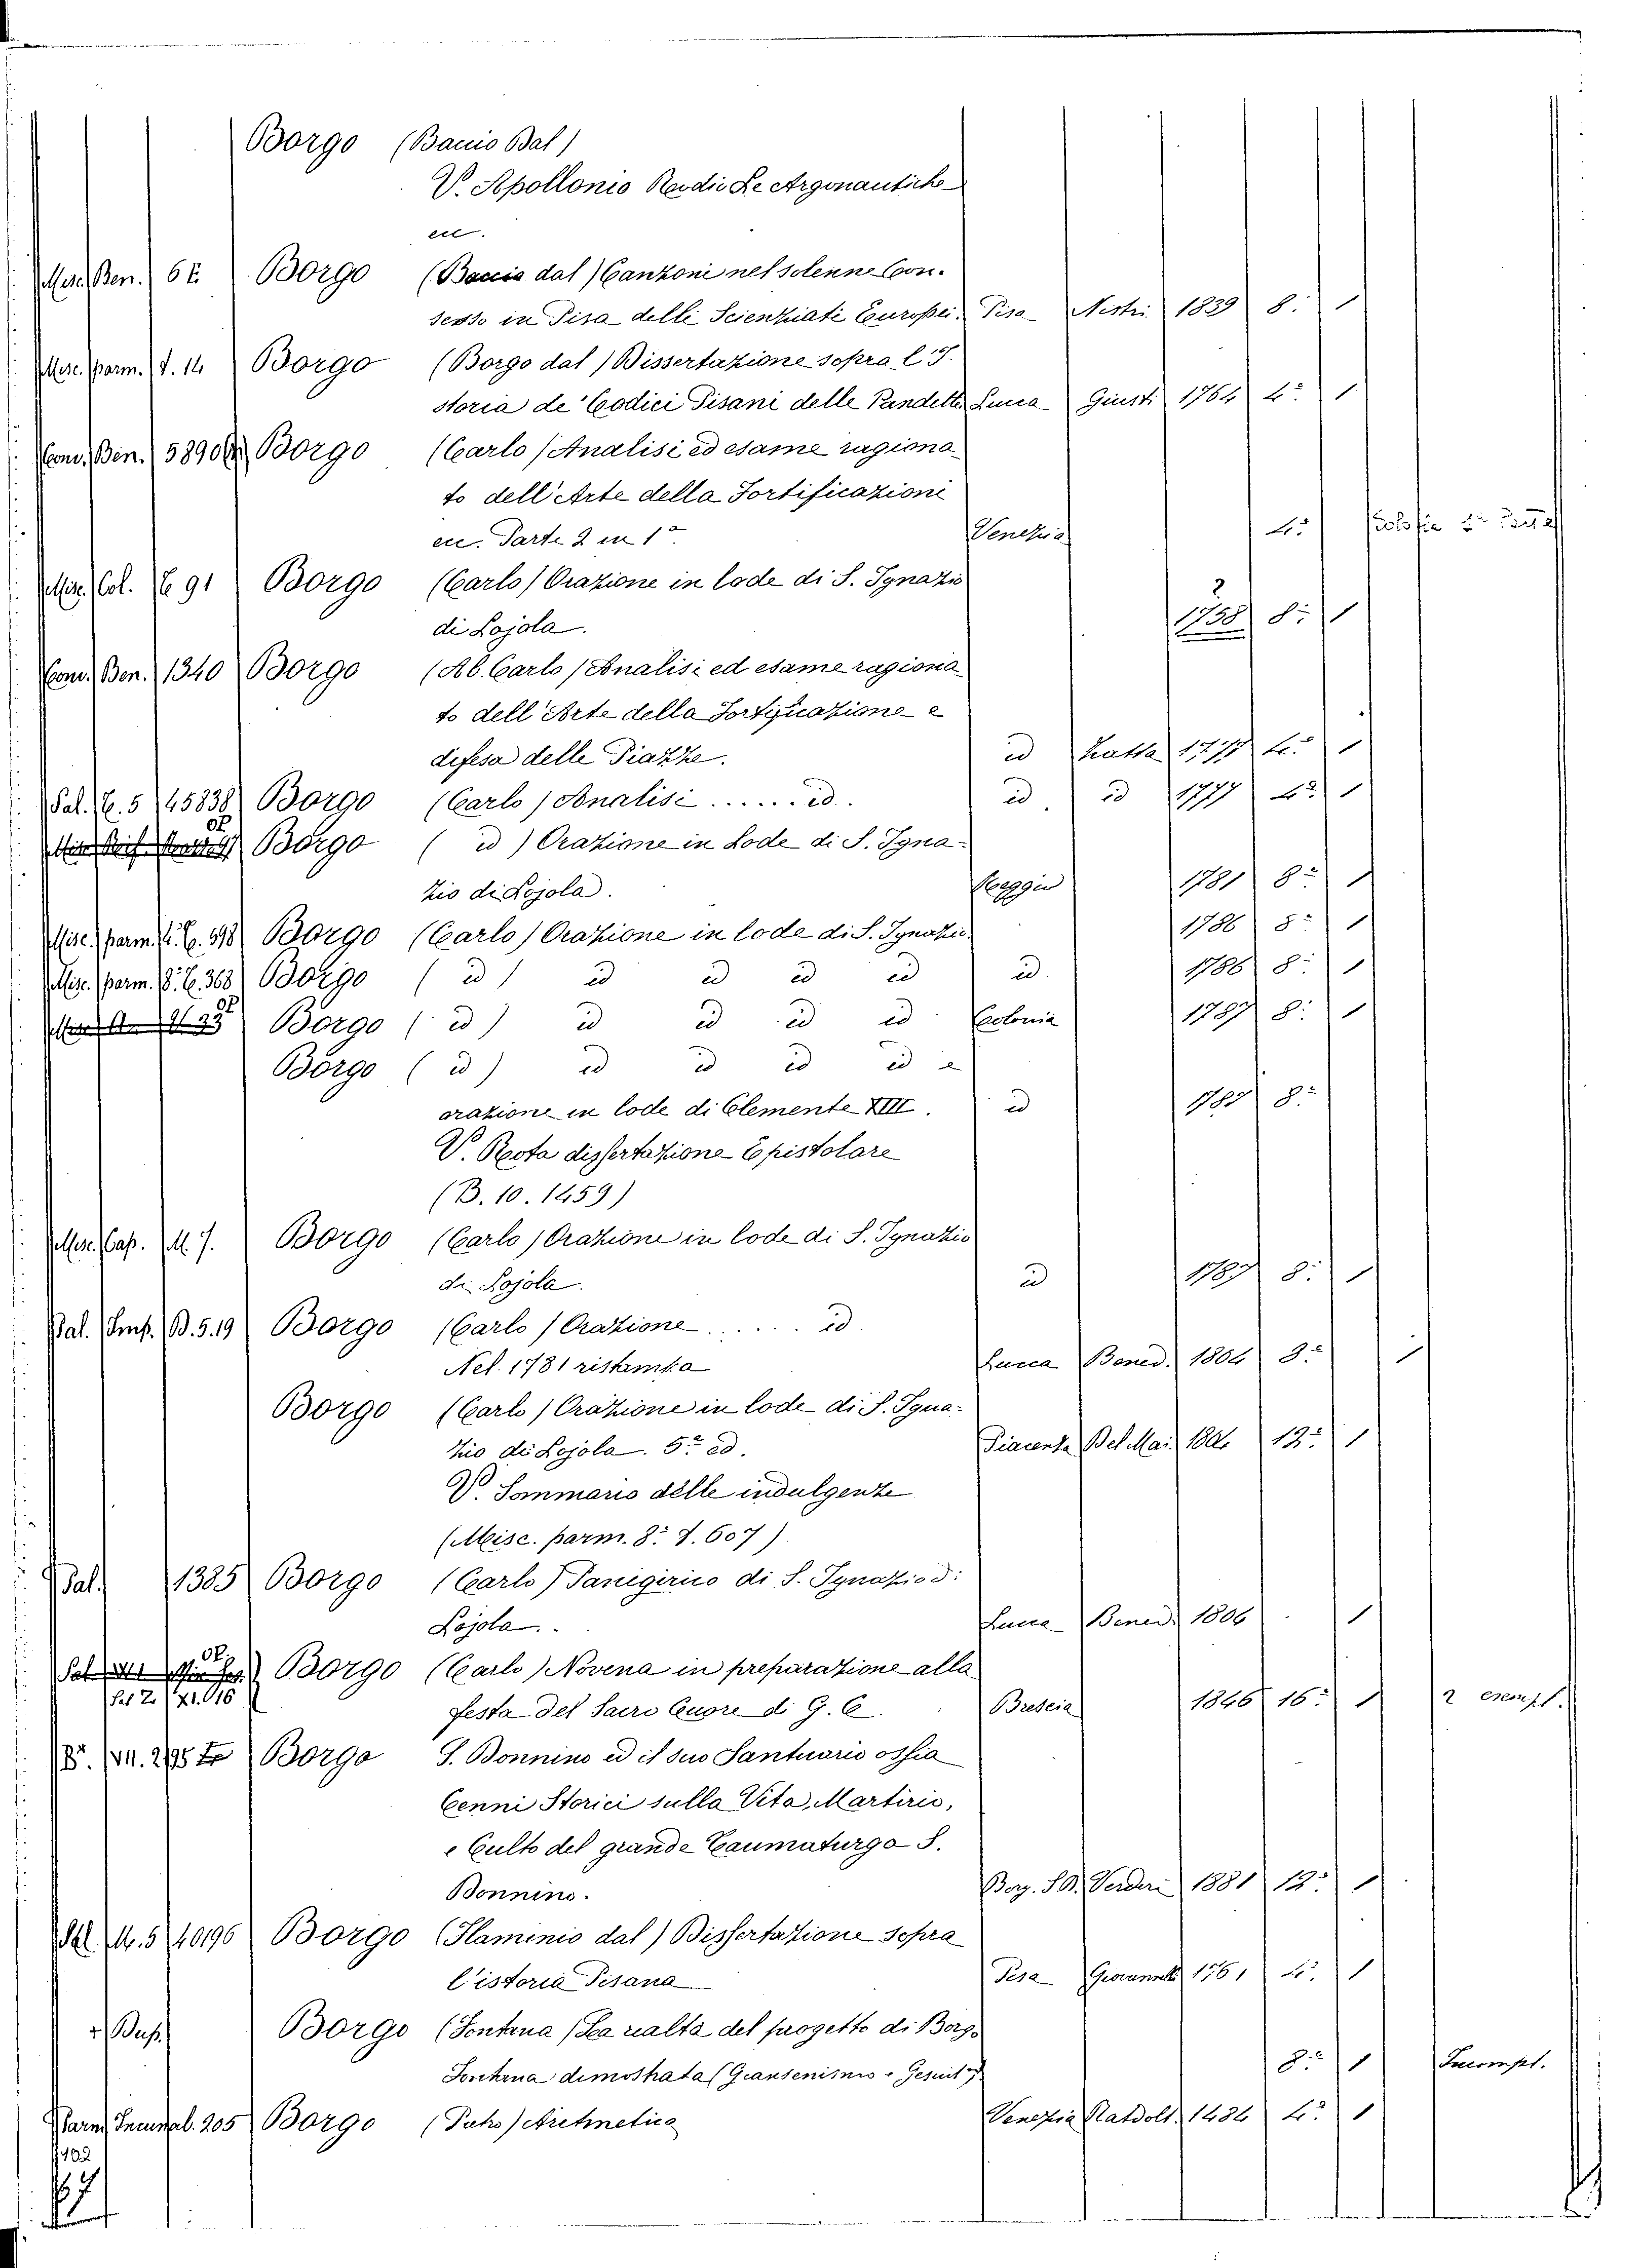 Borgo (Bacio Dal)
V. Apollonio Rodio Le Argonautiche
ecc.
Misc. Ben. 62 Borgo (Baccio dal) Canzoni nel solenne Con-
sesso in Pisa delli Scienziati Europei. Pisa Nistri 1839 8.º 1
Misc. parm. f. 14 Borgo (Borgo dal) Dissertazione sopra l'I-
storia de' Codici Pisani delle Pandette Lucca Giusti 1764 4.º 1
Cond. Ben. 5890 Borgo (Carlo) Analisi ed esame ragiona-
to dell'Arte della Fortificazioni
ecc. Parte 2 in 1º Venezia 4.º
Misc. Col. 91 Borgo (Carlo) Orazione in lode di S. Ignazio
di Lojola. 1758 ? 8.º 1
Cond. Ben. 1340 Borgo (Ab. Carlo) Analisi ed esame ragiona-
to dell'Arte della Fortificazione e
difesa delle Piazze. id Zatta 1777 4.º 1
Pal. C. 5 45838 Borgo (Carlo) Analisi ...... id. id. id 1777 4.º 1
Borgo ( id ) Orazione in Lode di S. Igna-
zio di Lojola. Reggio 1781 8.º 1
Misc. parm. Borgo (Carlo) Orazione in lode di S. Ignazio 1786 8.º 1
Misc. parm. 8.º 368 Borgo ( id ) id id id id id. 1786 8.º 1
Borgo ( id ) id id id id Colonia 1787 8.º 1
Borgo ( id ) id id id id e
orazione in lode di Clemente XIII. id 1787 8.º
V. Rota dissertazione Epistolare
(B. 10. 1459)
Misc. Cap. M. 7. Borgo (Carlo) Orazione in lode di S. Ignazio
di Lojola. id 1787 8.º 1
Pal. Imp. B. 5. 19 Borgo (Carlo) Orazione ...... id.
Nel. 1781 ristampa Lucca Bened. 1804 8.º 1
Borgo (Carlo) Orazione in lode di S. Igna-
zio di Lojola. 5ª ed. Piacenza Del Mai. 12.º 1
V. Sommario delle indulgenze
(Misc. parm. 8.º f. 607)
Pal. 1385 Borgo (Carlo) Panigirico di S. Ignazio di
Lojola. Lucca Bened. 1806 1
Borgo (Carlo) Novena in preparazione alla
festa del Sacro Cuore di G. C. Brescia 1846 16.º 1 2 esempl.
Borgo S. Donnino ed il suo Santuario ossia
Cenni Storici sulla Vita, Martirio,
e Culto del grande Taumaturgo S.
Donnino. Borg. S.D. Verderi 1881 12.º 1
Pal. M. 5 40196 Borgo (Flaminio dal) Dissertazione sopra
l'istoria Pisana Pisa Giovannelli 1761 4.º 1
+ Dup. Borgo (Fontana) La realtà del progetto di Borgo
Fontana dimostrata (Giansenismo e Gesuit.) 8.º 1 Incompl.
Parm. Incunab. 205 Borgo (Pietro) Arithmetica Venezia Ratdolt. 1484 4.º 1
1402
67